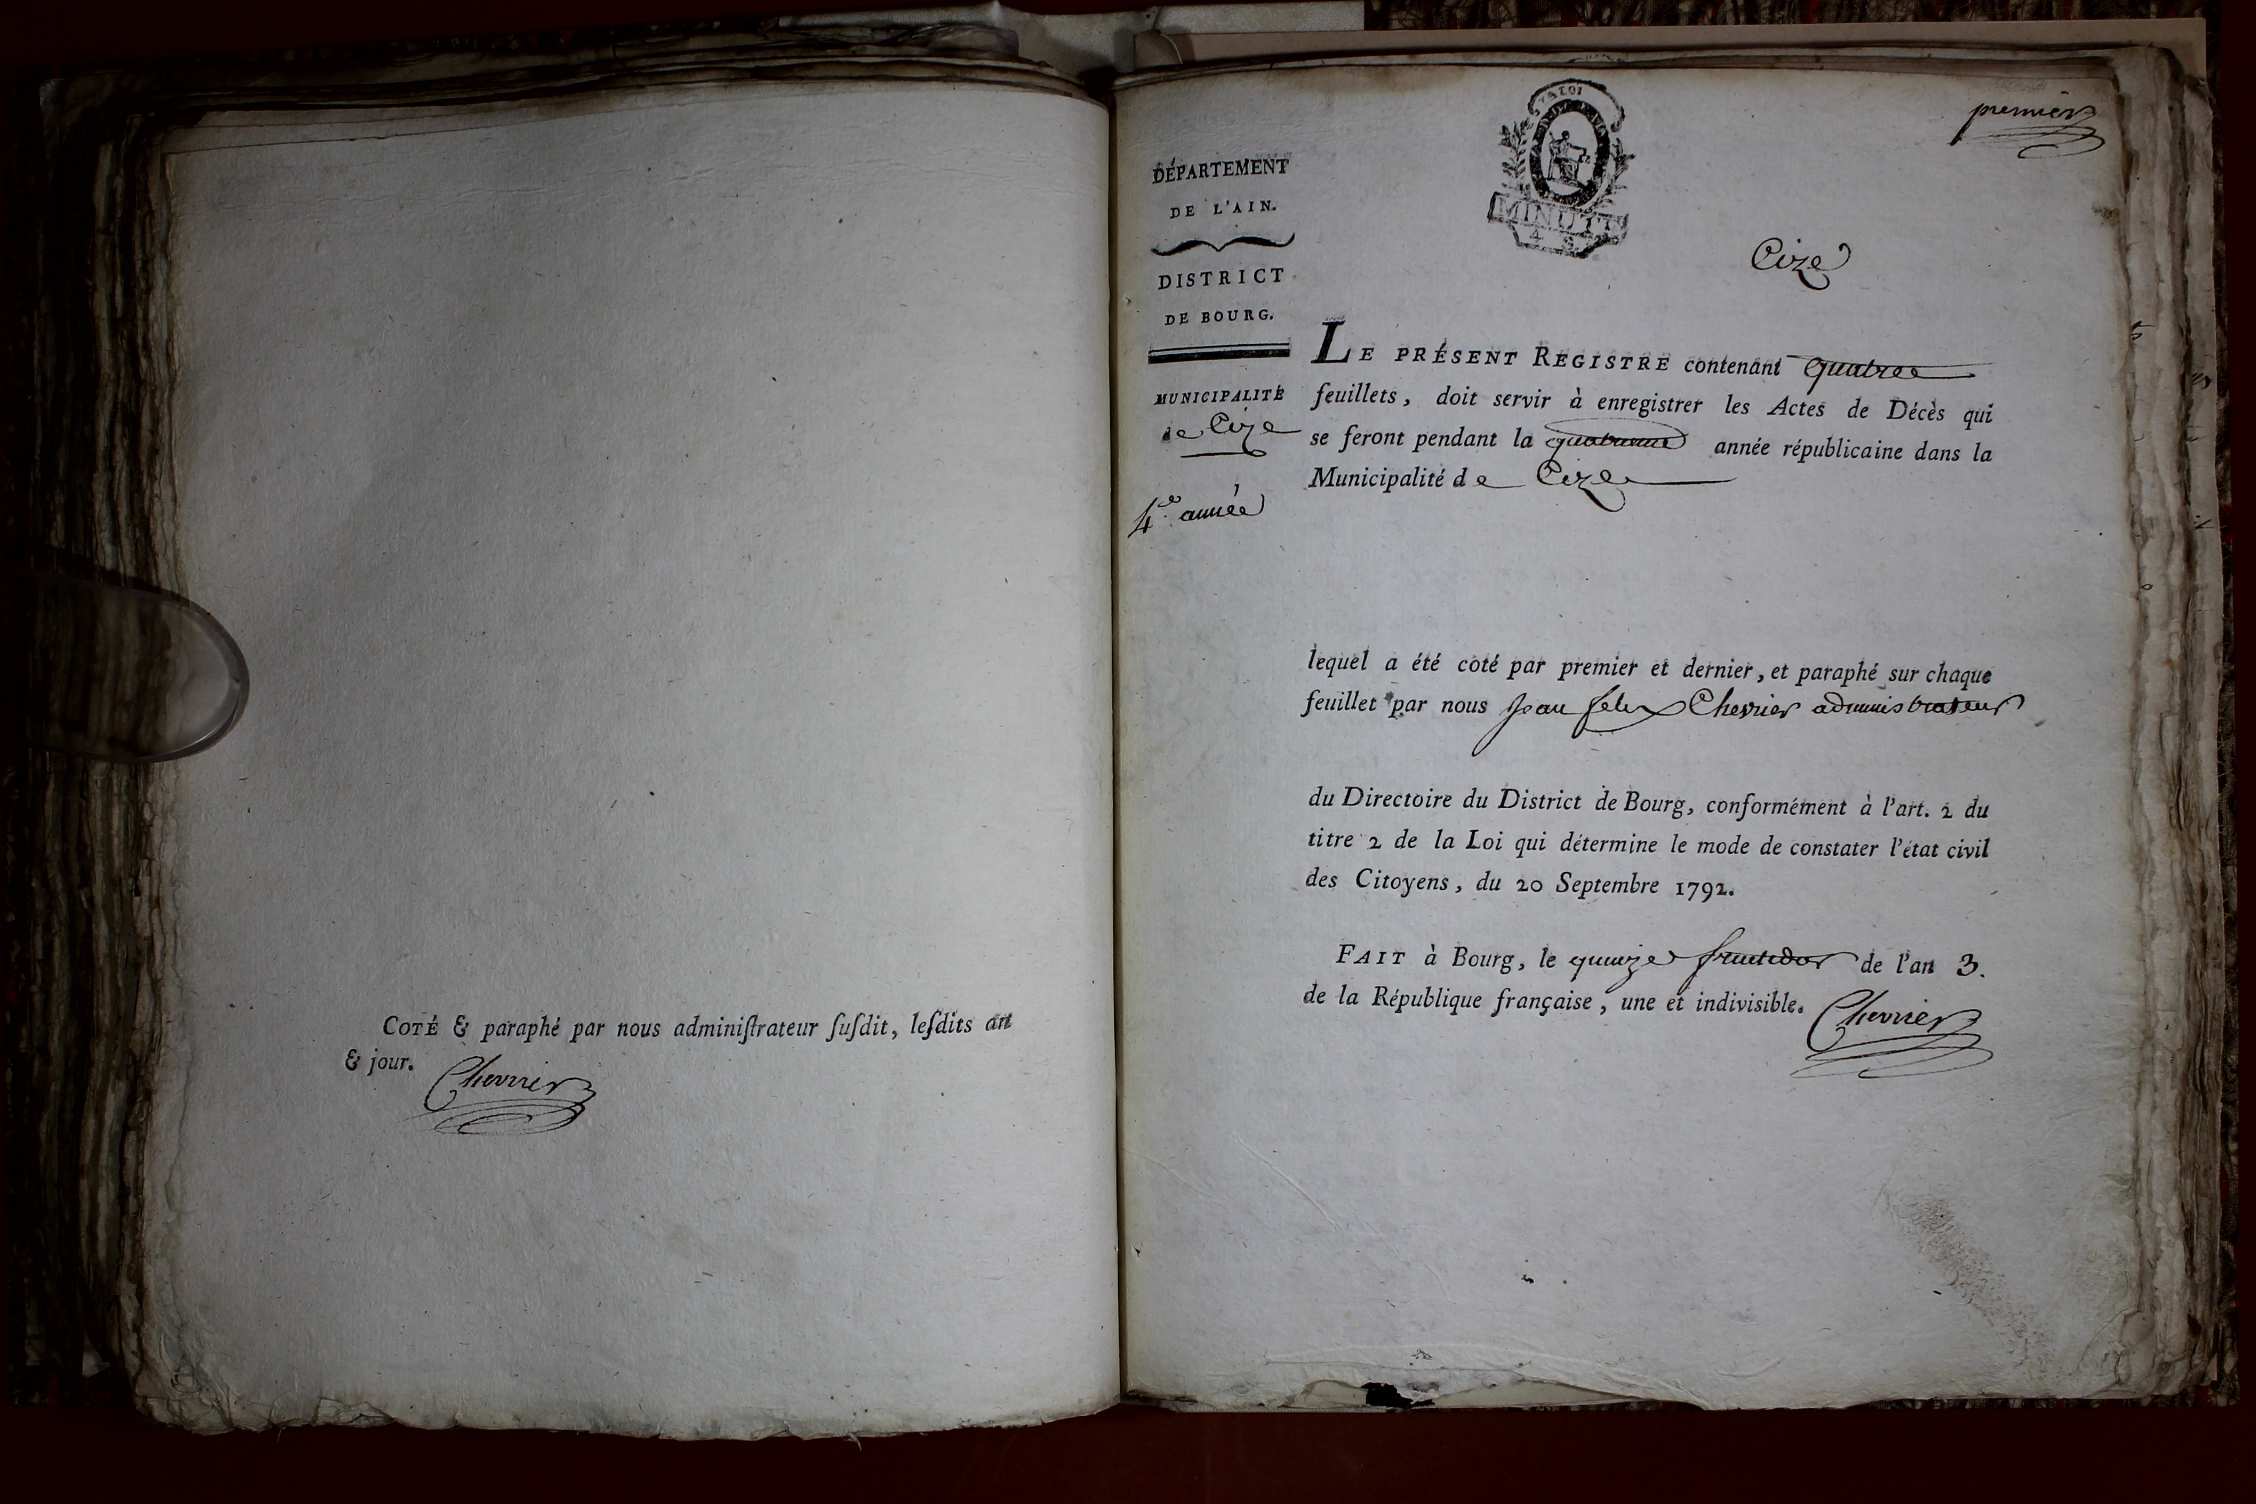 COTÉ & paraphé par nous adminiſtrateur ſuſdit, leſdits an
& jour. Chevrier
premier
LA LOI
MINUTE
4 S
DÉPARTEMENT
DE L'AIN.
DISTRICT
DE BOURG.
MUNICIPALITÉ
de Cize
4e année
Cize
LE PRÉSENT REGISTRE contenant quatre
feuillets, doit servir à enregistrer les Actes de Décès qui
se feront pendant la quatrieme année républicaine dans la
Municipalité de Cize
lequel a été coté par premier et dernier, et paraphé sur chaque
feuillet par nous Jean felix Chevrier administrateur
du Directoire du District de Bourg, conformément à l'art. 2 du
titre 2 de la Loi qui détermine le mode de constater l'état civil
des Citoyens, du 20 Septembre 1792.
FAIT à Bourg, le quinze fructidor de l'an 3.
de la République française, une et indivisible. Chevrier